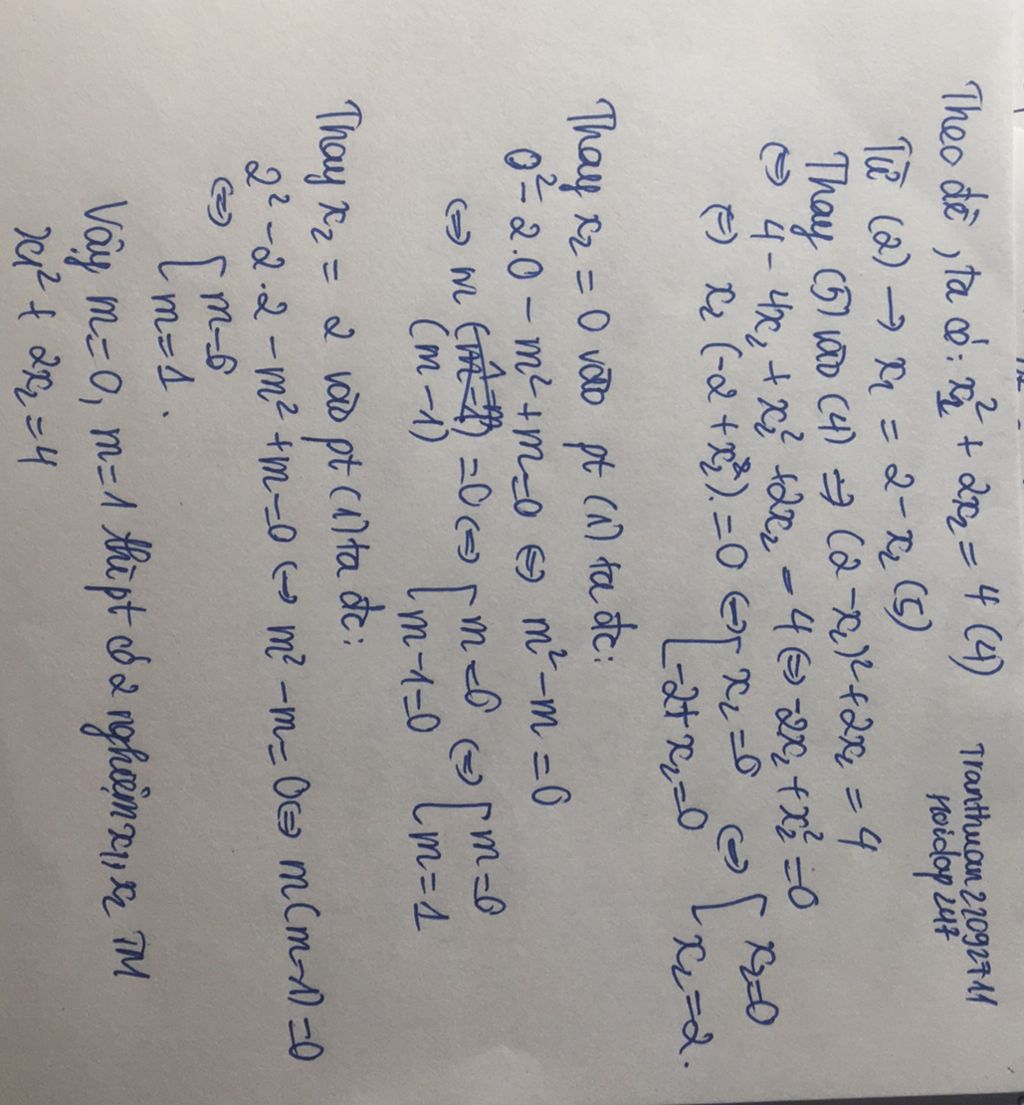 Theo đề, ta có: x₁² + 2x₂ = 4 (4)
Tranthuan22092711
hoidap247
Từ (2) → x₁ = 2 - x₂ (5)
Thay (5) vào (4) ⇒ (2 - x₂)² + 2x₂ = 4
⇔ 4 - 4x₂ + x₂² + 2x₂ = 4 ⇔ -2x₂ + x₂² = 0
⇔ x₂ (-2 + x₂) = 0 ⇔ [ x₂ = 0 ⇔ [ x₂ = 0
-2 + x₂ = 0 x₂ = 2.
Thay x₂ = 0 vào pt (1) ta đc:
0² - 2.0 - m² + m = 0 ⇔ m² - m = 0
⇔ m = 0 ⇔ [ m = 0 ⇔ [ m = 0
(m - 1) m - 1 = 0 m = 1
Thay x₂ = 2 vào pt (1) ta đc:
2² - 2.2 - m² + m = 0 ⇔ m² - m = 0 ⇔ m (m - 1) = 0
⇔ [ m = 0
m = 1.
Vậy m = 0, m = 1 thì pt có 2 nghiệm x₁, x₂ TM
x₁² + 2x₂ = 4